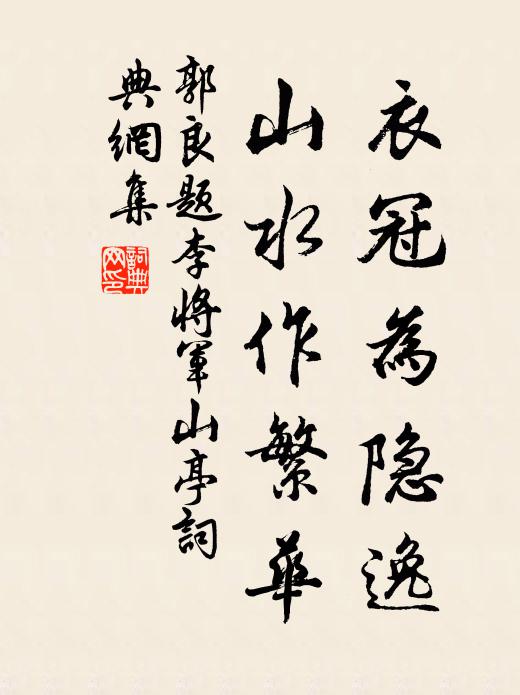 衣冠為隐逸
山水作繁華
郭良題李將軍山亭詞
典網集
詞典
网印